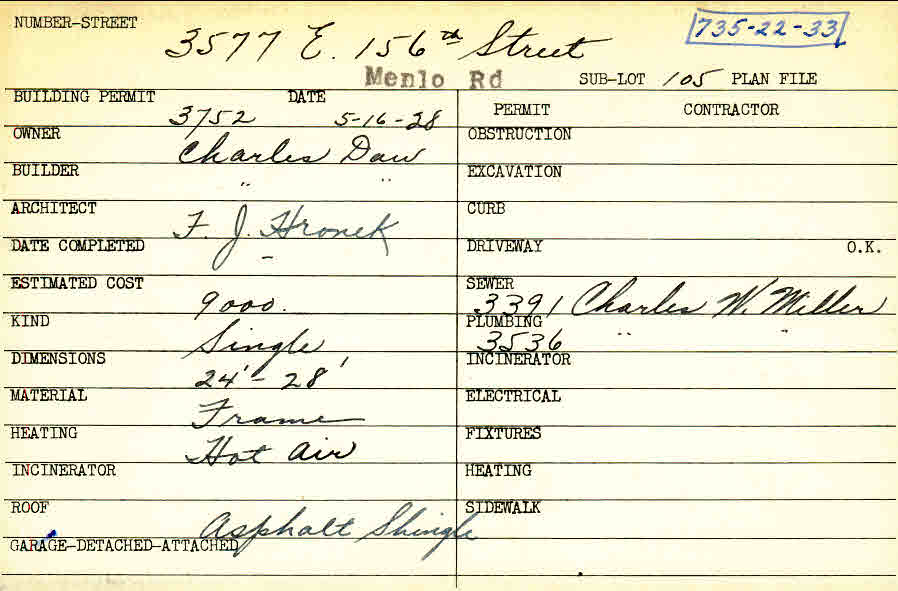 NUMBER-STREET 3577 E. 156th Street 735-22-33
Menlo Rd SUB-LOT 105 PLAN FILE
BUILDING PERMIT 3752 DATE 5-16-28 PERMIT CONTRACTOR
OWNER Charles Daw OBSTRUCTION
BUILDER " " EXCAVATION
ARCHITECT F. J. Hronek CURB
DATE COMPLETED - DRIVEWAY O.K.
ESTIMATED COST 9000. SEWER 3391 Charles W. Miller
KIND Single PLUMBING 3536 " "
DIMENSIONS 24' - 28' INCINERATOR
MATERIAL Frame ELECTRICAL
HEATING Hot Air FIXTURES
INCINERATOR HEATING
ROOF Asphalt Shingle SIDEWALK
GARAGE-DETACHED-ATTACHED